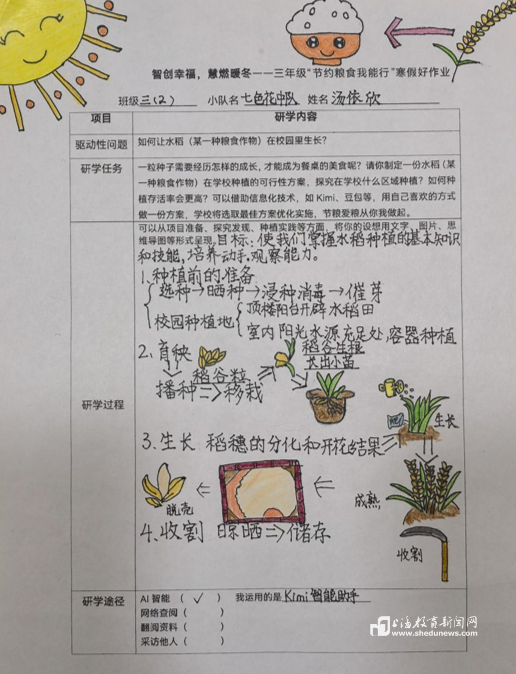 智创幸福，慧燃暖冬——三年级“节约粮食我能行”寒假好作业
班级三(2) 小队名七色花中队 姓名汤依欣
项目 研学内容
驱动性问题 如何让水稻（某一种粮食作物）在校园里生长？
研学任务 一粒种子需要经历怎样的成长，才能成为餐桌的美食呢？请你制定一份水稻（某
一种粮食作物）在学校种植的可行性方案，探究在学校什么区域种植？如何种
植存活率会更高？可以借助信息化技术，如 Kimi、豆包等，用自己喜欢的方式
做一份方案，学校将选取最佳方案优化实施，节粮爱粮从你我做起。
研学过程
可以从项目准备、探究发现、种植实践等方面，将你的设想用文字、图片、思
维导图等形式呈现。目标：使我们掌握水稻种植的基本知识
和技能，培养动手、观察能力。
1、种植前的准备
选种→晒种→浸种消毒→催芽
校园种植地
顶楼阳台开辟水稻田
室内阳光水源充足处,容器种植
2、育秧
稻谷粒
稻谷生根
长出小苗
播种⇒移栽
肥
生长
3、生长 稻穗的分化和开花结果⇒
成熟
脱壳
4、收割 晾晒⇒储存
收割
研学途径
AI 智能 （ ✓ ） 我运用的是Kimi智能助手
网络查阅（ ）
翻阅资料（ ）
采访他人（ ）
上海教育新闻网
www.shedunews.com